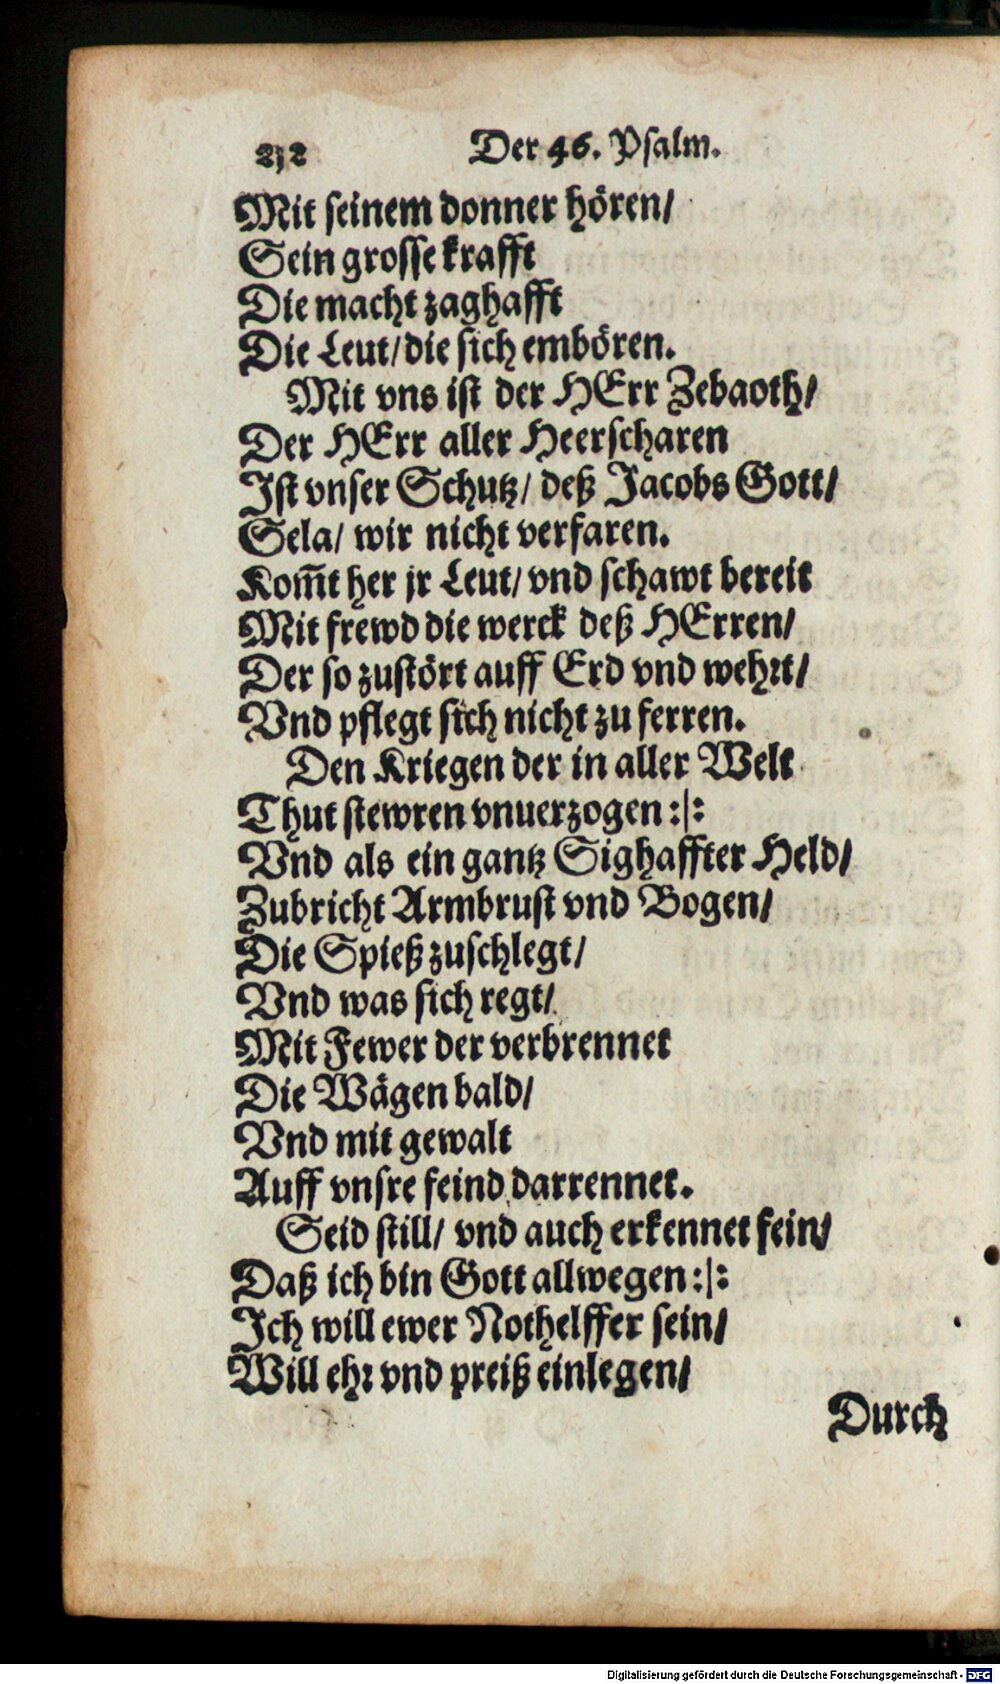 212 Der 46. Psalm.
Mit seinem donner hören/
Sein grosse krafft
Die macht zaghafft
Die Leut/ die sich embören.
Mit vns ist der HErr Zebaoth/
Der HErr aller Heerscharen
Ist vnser Schutz/ deß Jacobs Gott/
Sela/ wir nicht verfaren.
Kom̅t her jr Leut/ vnd schawt bereit
Mit frewd die werck deß HErren/
Der so zustört auff Erd vnd wehrt/
Vnd pflegt sich nicht zu ferren.
Den Kriegen der in aller Welt
Thut stewren vnuerzogen :|:
Vnd als ein gantz Sighaffter Held/
Zubricht Armbrust vnd Bogen/
Die Spieß zuschlegt/
Vnd was sich regt/
Mit Fewer der verbrennet
Die Wägen bald/
Vnd mit gewalt
Auff vnsre feind darrennet.
Seid still/ vnd auch erkennet fein/
Daß ich bin Gott allwegen :|:
Ich will ewer Nothelffer sein/
Will ehr vnd preiß einlegen/
Durch
Digitalisierung gefördert durch die Deutsche Forschungsgemeinschaft - DFG